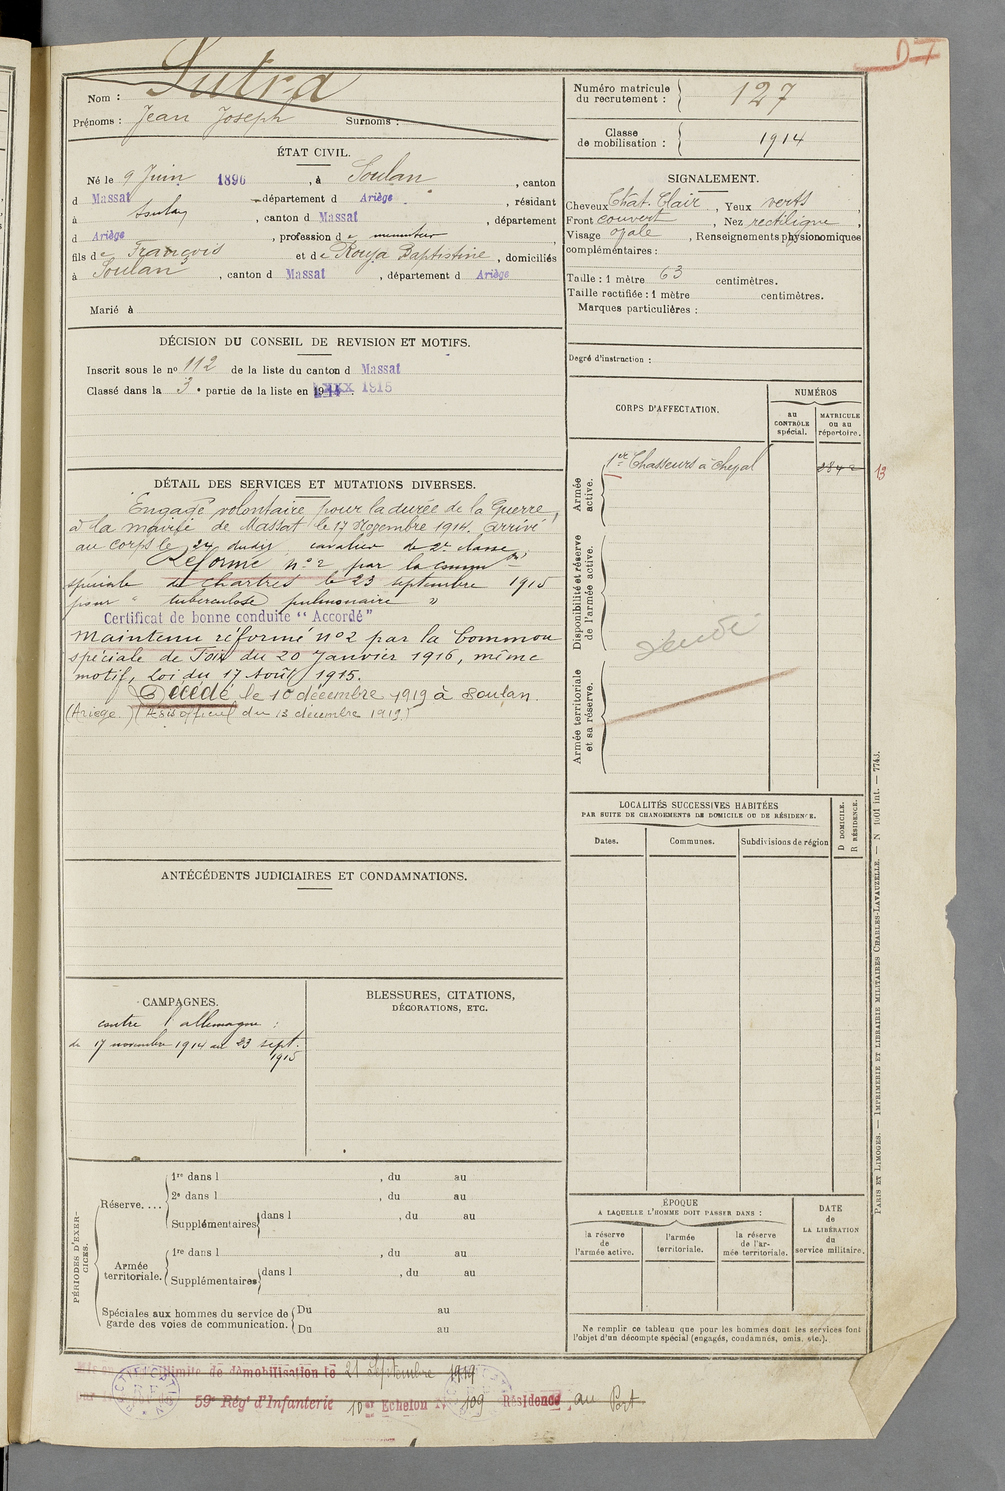 D I
Nom : Sutra
Prénoms : Jean Joseph Surnoms :
ÉTAT CIVIL.
Né le 9 Juin 1896, à Soulan, canton
d Massat département d Ariège, résidant
à Soulan, canton d Massat, département
d Ariège, profession de
fils de François et de Rouja Baptistine, domiciliés
à Soulan, canton d Massat, département d Ariège
Marié à
DÉCISION DU CONSEIL DE REVISION ET MOTIFS.
Inscrit sous le nº 112 de la liste du canton d Massat
Classé dans la 3e partie de la liste en 1915
DÉTAIL DES SERVICES ET MUTATIONS DIVERSES.
Engagé volontaire pour la durée de la Guerre,
à la mairie de Massat le 17 Novembre 1914. Arrivé
au corps le 24 dudit, cavalier de 2e classe
Réformé nº 2 par la Common
spéciale de Chartres le 23 septembre 1915
pour " tuberculose pulmonaire "
Certificat de bonne conduite " Accordé "
Maintenu réformé Nº2 par la Common
spéciale de Foix du 20 Janvier 1916, même
motif, Loi du 17 Août 1915.
Décédé le 10 décembre 1919 à Soulan.
(Ariège.) (Avis officiel du 13 décembre 1919.)
ANTÉCÉDENTS JUDICIAIRES ET CONDAMNATIONS.
CAMPAGNES.
contre l'allemagne :
du 17 novembre 1914 au 23 sept.
1915
BLESSURES, CITATIONS,
DÉCORATIONS, ETC.
PÉRIODES D'EXERCICES.
Réserve....
1re dans l , du au
2e dans l , du au
Supplémentaires dans l , du au
Armée territoriale.
1re dans l , du au
Supplémentaires dans l , du au
Spéciales aux hommes du service de garde des voies de communication.
Du au
Du au
Numéro matricule du recrutement : 127
Classe de mobilisation : 1914
SIGNALEMENT.
Cheveux Chat. Clair, Yeux verts,
Front couvert, Nez rectiligne,
Visage ovale, Renseignements physionomiques
complémentaires :
Taille : 1 mètre 63 centimètres.
Taille rectifiée : 1 mètre centimètres.
Marques particulières :
Degré d'instruction :
CORPS D'AFFECTATION.
NUMÉROS
au CONTRÔLE spécial.
MATRICULE ou au répertoire.
Armée active.
1er Chasseurs à cheval
13
Disponibilité et réserve de l'armée active.
Armée territoriale et sa réserve.
LOCALITÉS SUCCESSIVES HABITÉES
PAR SUITE DE CHANGEMENTS DE DOMICILE OU DE RÉSIDENCE.
D DOMICILE.
R RÉSIDENCE.
Dates. Communes. Subdivisions de région
ÉPOQUE
A LAQUELLE L'HOMME DOIT PASSER DANS :
la réserve de l'armée active.
l'armée territoriale.
la réserve de l'armée territoriale.
DATE de LA LIBÉRATION du service militaire.
Ne remplir ce tableau que pour les hommes dont les services font
l'objet d'un décompte spécial (engagés, condamnés, omis, etc.).
illimité de démobilisation le 21 Septembre 1919
59e Rég' d'Infanterie 10e Echelon Nº 109 Résidence au Port
PARIS ET LIMOGES. — IMPRIMERIE ET LIBRAIRIE MILITAIRES CHARLES-LAVAUZELLE. — N 1001 int. — 7743.